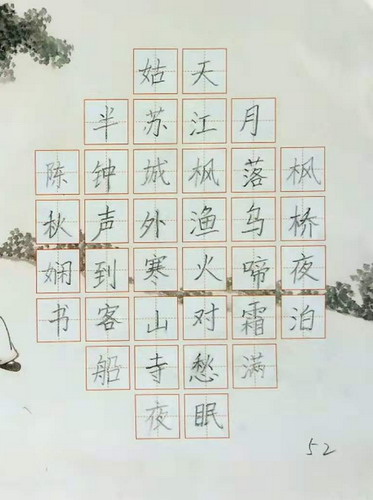 枫桥夜泊
月落乌啼霜满
天江枫渔火对愁眠
姑苏城外寒山寺夜
半钟声到客船
陈秋娴书
52